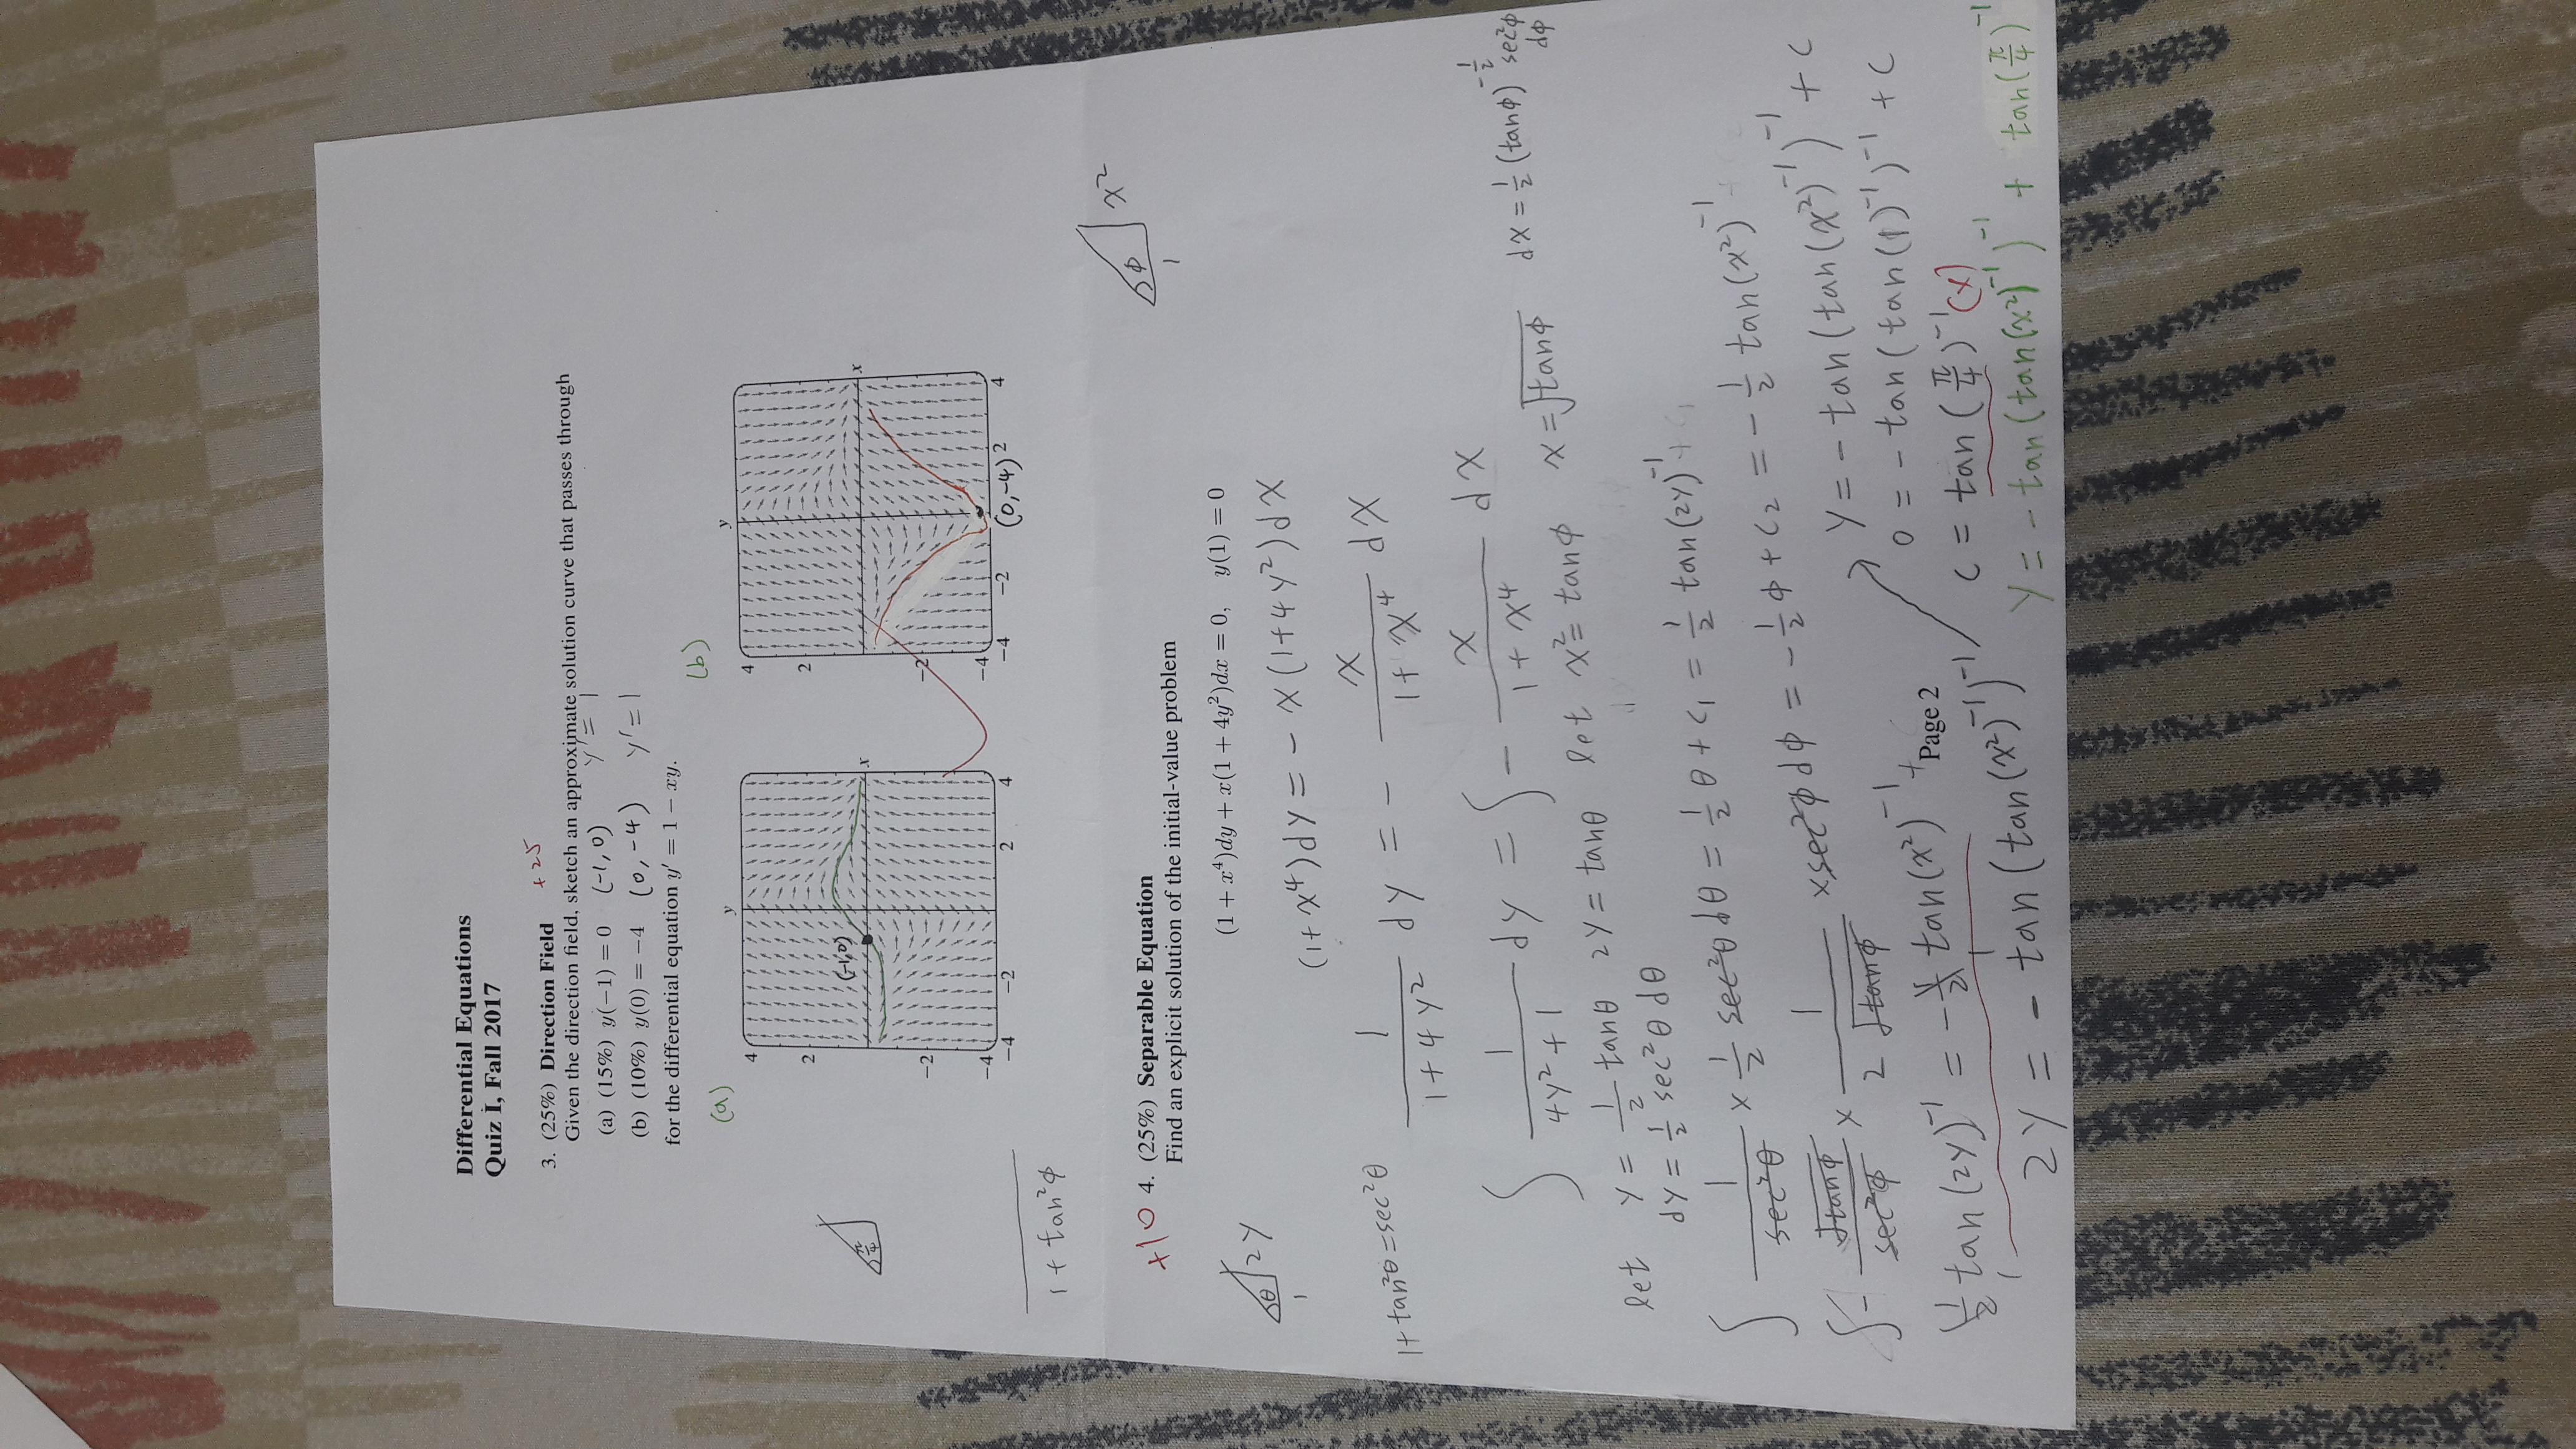 Differential Equations
Quiz I, Fall 2017
3. (25%) Direction Field +25
Given the direction field, sketch an approximate solution curve that passes through
(a) (15%) y(−1) = 0 (-1,0) y' = 1
(b) (10%) y(0) = −4 (0,-4) y' = 1
for the differential equation y′ = 1 − xy.
(a) (b)
y y
4 4
2 2
(-1,0)
x x
π/4
−2 −2
−4 −4
−4 −2 2 4 −4 −2 (0,-4) 2 4
1 + tan²φ
φ x² 1
+10 4. (25%) Separable Equation
Find an explicit solution of the initial-value problem
(1 + x⁴)dy + x(1 + 4y²)dx = 0, y(1) = 0
θ 2y 1
(1+x⁴)dy = - x(1+4y²)dx
1+tan²θ=sec²θ
1/(1+4y²) dy = - x/(1+x⁴) dx
∫ 1/(4y²+1) dy = ∫ - x/(1+x⁴) dx
let y = 1/2 tanθ 2y = tanθ let x² = tanφ x = √tanφ dx = 1/2 (tanφ)^(-1/2) sec²φ dφ
dy = 1/2 sec²θ dθ
∫ 1/sec²θ × 1/2 sec²θ dθ = 1/2 θ + C₁ = 1/2 tan(2y)⁻¹
∫ - √tanφ/sec²φ × 1/(2√tanφ) × sec²φ dφ = -1/2 φ + C₂ = -1/2 tan(x²)⁻¹
1/2 tan(2y)⁻¹ = -1/2 tan(x²)⁻¹ +
2y = - tan(tan(x²)⁻¹)⁻¹
y = - tan(tan(x²)⁻¹)⁻¹ + C
0 = - tan(tan(1)⁻¹)⁻¹ + C
C = tan(π/4)⁻¹ (x)
y = - tan(tan(x²)⁻¹)⁻¹ + tan(π/4)⁻¹
Page 2